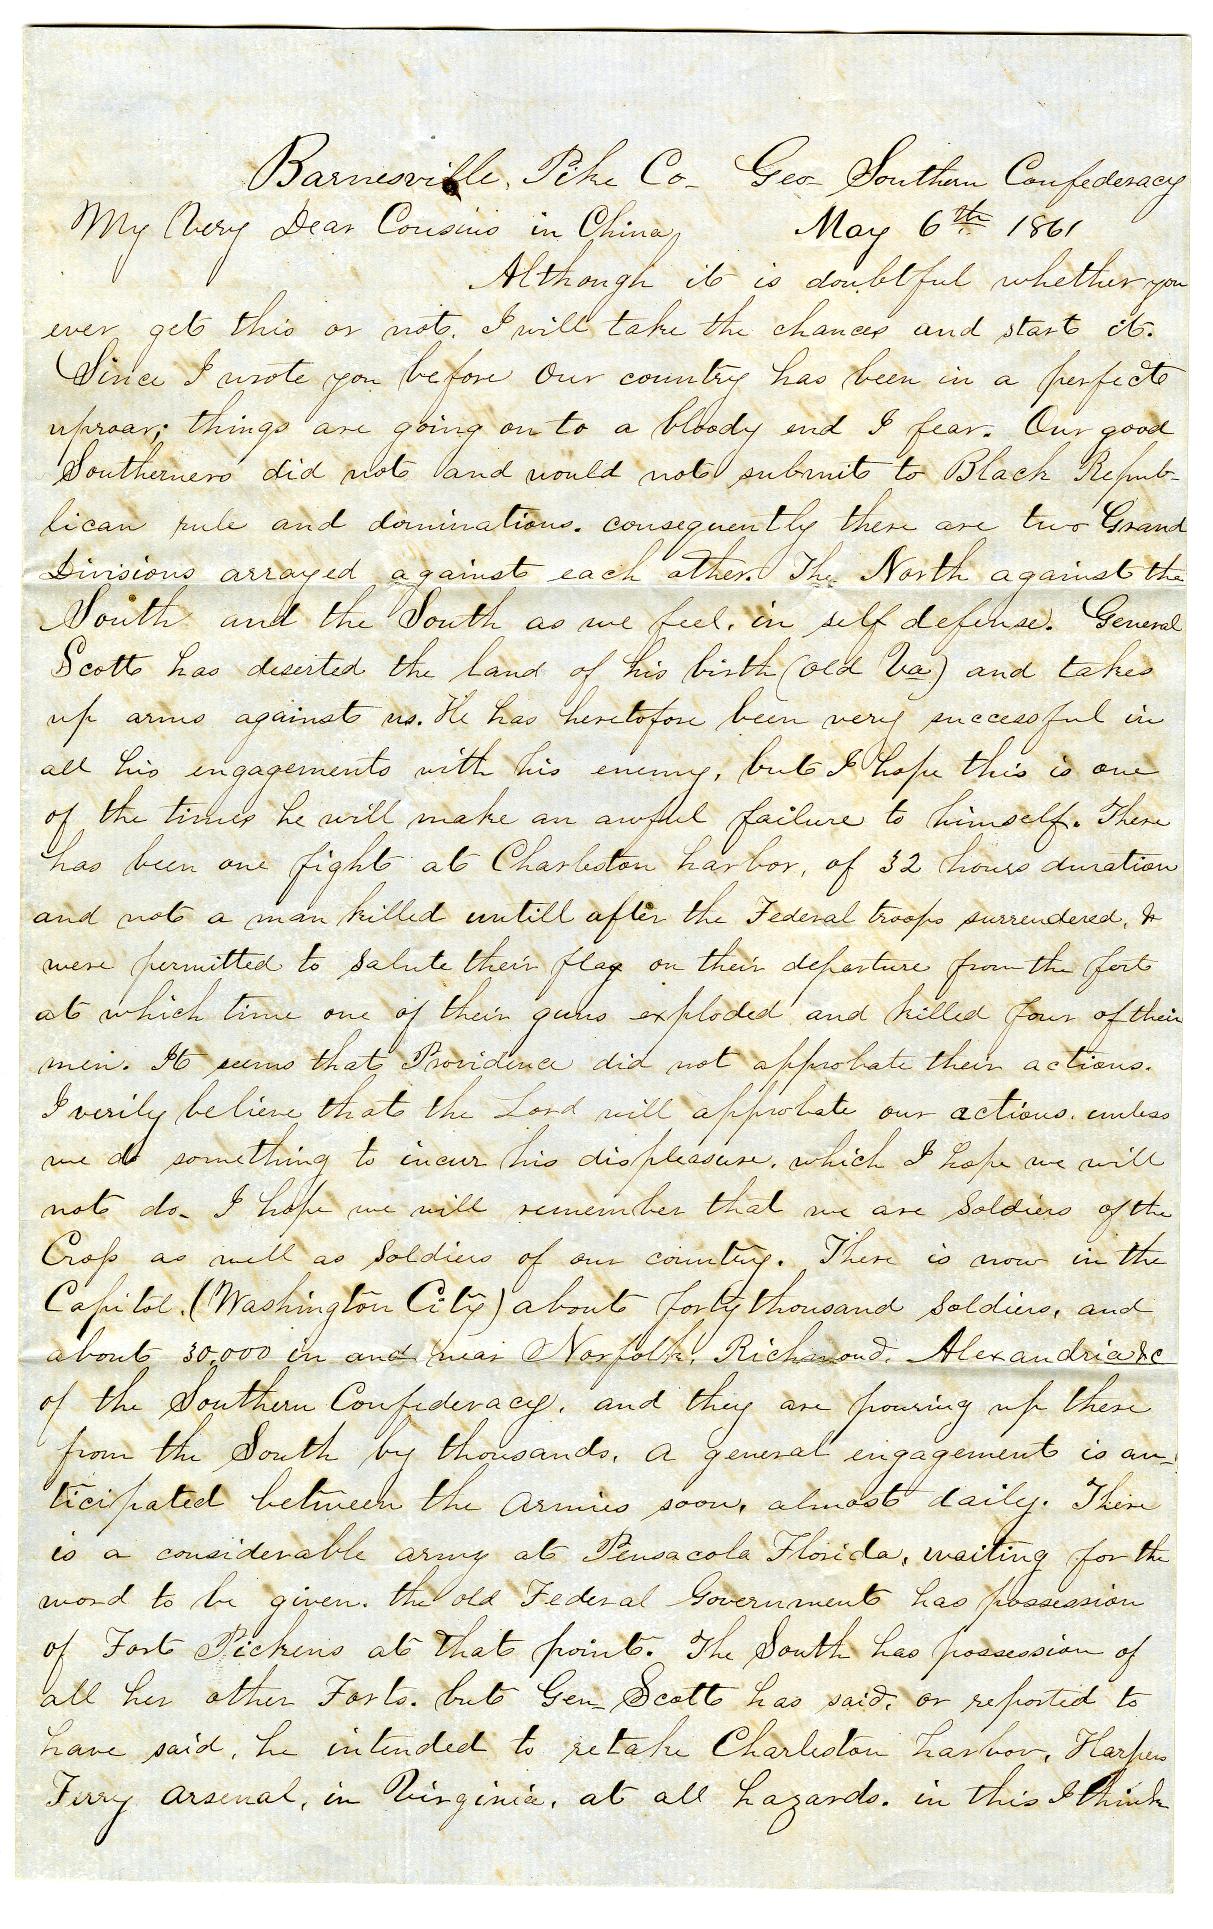 Barnesville, Pike Co- Geo- Southern Confederacy
My Very Dear Cousins in China, May 6th 1861
Although it is doubtful whether you
ever get this or not, I will take the chances and start it.
Since I wrote you before our country has been in a perfect
uproar; things are going on to a bloody end I fear. Our good
Southerners did not and would not submit to Black Repub-
lican rule and dominations. consequently there are two Grand
Divisions arrayed against each other. The North against the
South and the South as we feel, in self defense. General
Scott has deserted the land of his birth (old Va) and takes
up arms against us. He has heretofore been very successful in
all his engagements with his enemy, but I hope this is one
of the times he will make an awful failure to himself. There
has been one fight at Charleston harbor, of 32 hours duration
and not a man killed untill after the Federal troops surrendered, &
were permitted to salute their flag on their departure from the fort
at which time one of their guns exploded and killed four of their
men. It seems that Providence did not approbate their actions.
I verily believe that the Lord will approbate our actions, unless
we do something to incur his displeasure, which I hope we will
not do- I hope we will remember that we are Soldiers of the
Cross as well as Soldiers of our country. There is now in the
Capitol, (Washington City) about forty thousand soldiers, and
about 30,000 in and near Norfolk, Richmond, Alexandria &c
of the Southern Confederacy, and they are pouring up there
from the South by thousands, a general engagement is an-
ticipated between the armies soon, almost daily. There
is a considerable army at Pensacola Florida, waiting for the
word to be given. the old Federal Government has possession
of Fort Pickens at that point. The South has possession of
all her other Forts. but Gen- Scott has said, or reported to
have said, he intended to retake Charleston harbor, Harpers
Ferry arsenal, in Virginia, at all hazards. in this I think